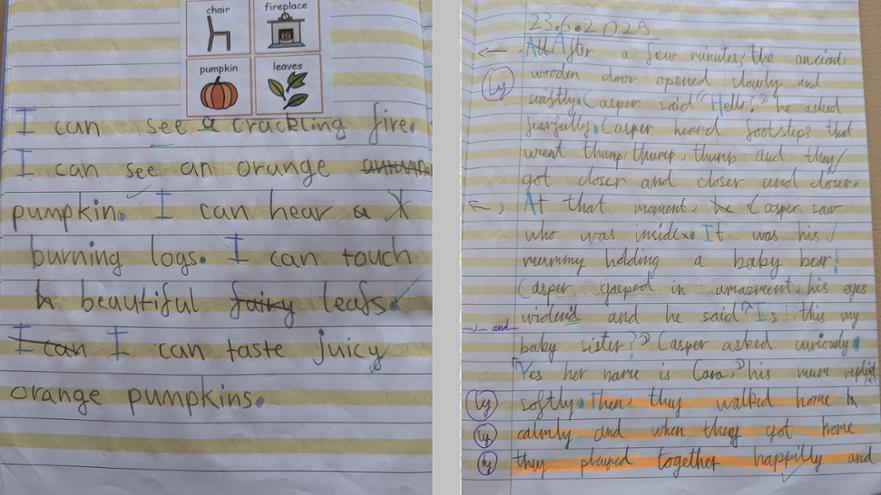 chair
fireplace
pumpkin
leaves
I can see a crackling fire.
I can see an orange
pumpkin. I can hear a
burning logs. I can touch
beautiful fairy leafs.
I can I can taste juicy
orange pumpkins.
23.6.2025
After a few minutes, the ancient
ly
wooden door opened slowly and
swiftly. Casper said "Hello?" he asked
fearfully. Casper heard footsteps that
went thump, thump, thump and they
got closer and closer and closer.
At that moment, Casper saw
who was inside. It was his
mummy holding a baby bear!
Casper gasped in amazment, his eyes
widend and he said "Is this my
and
baby sister?" Casper asked curiously.
"Yes her name is Cara," his mum replied
ly
softly. Then, they walked home
ly
calmly and when they got home
ly
they played together happilly and